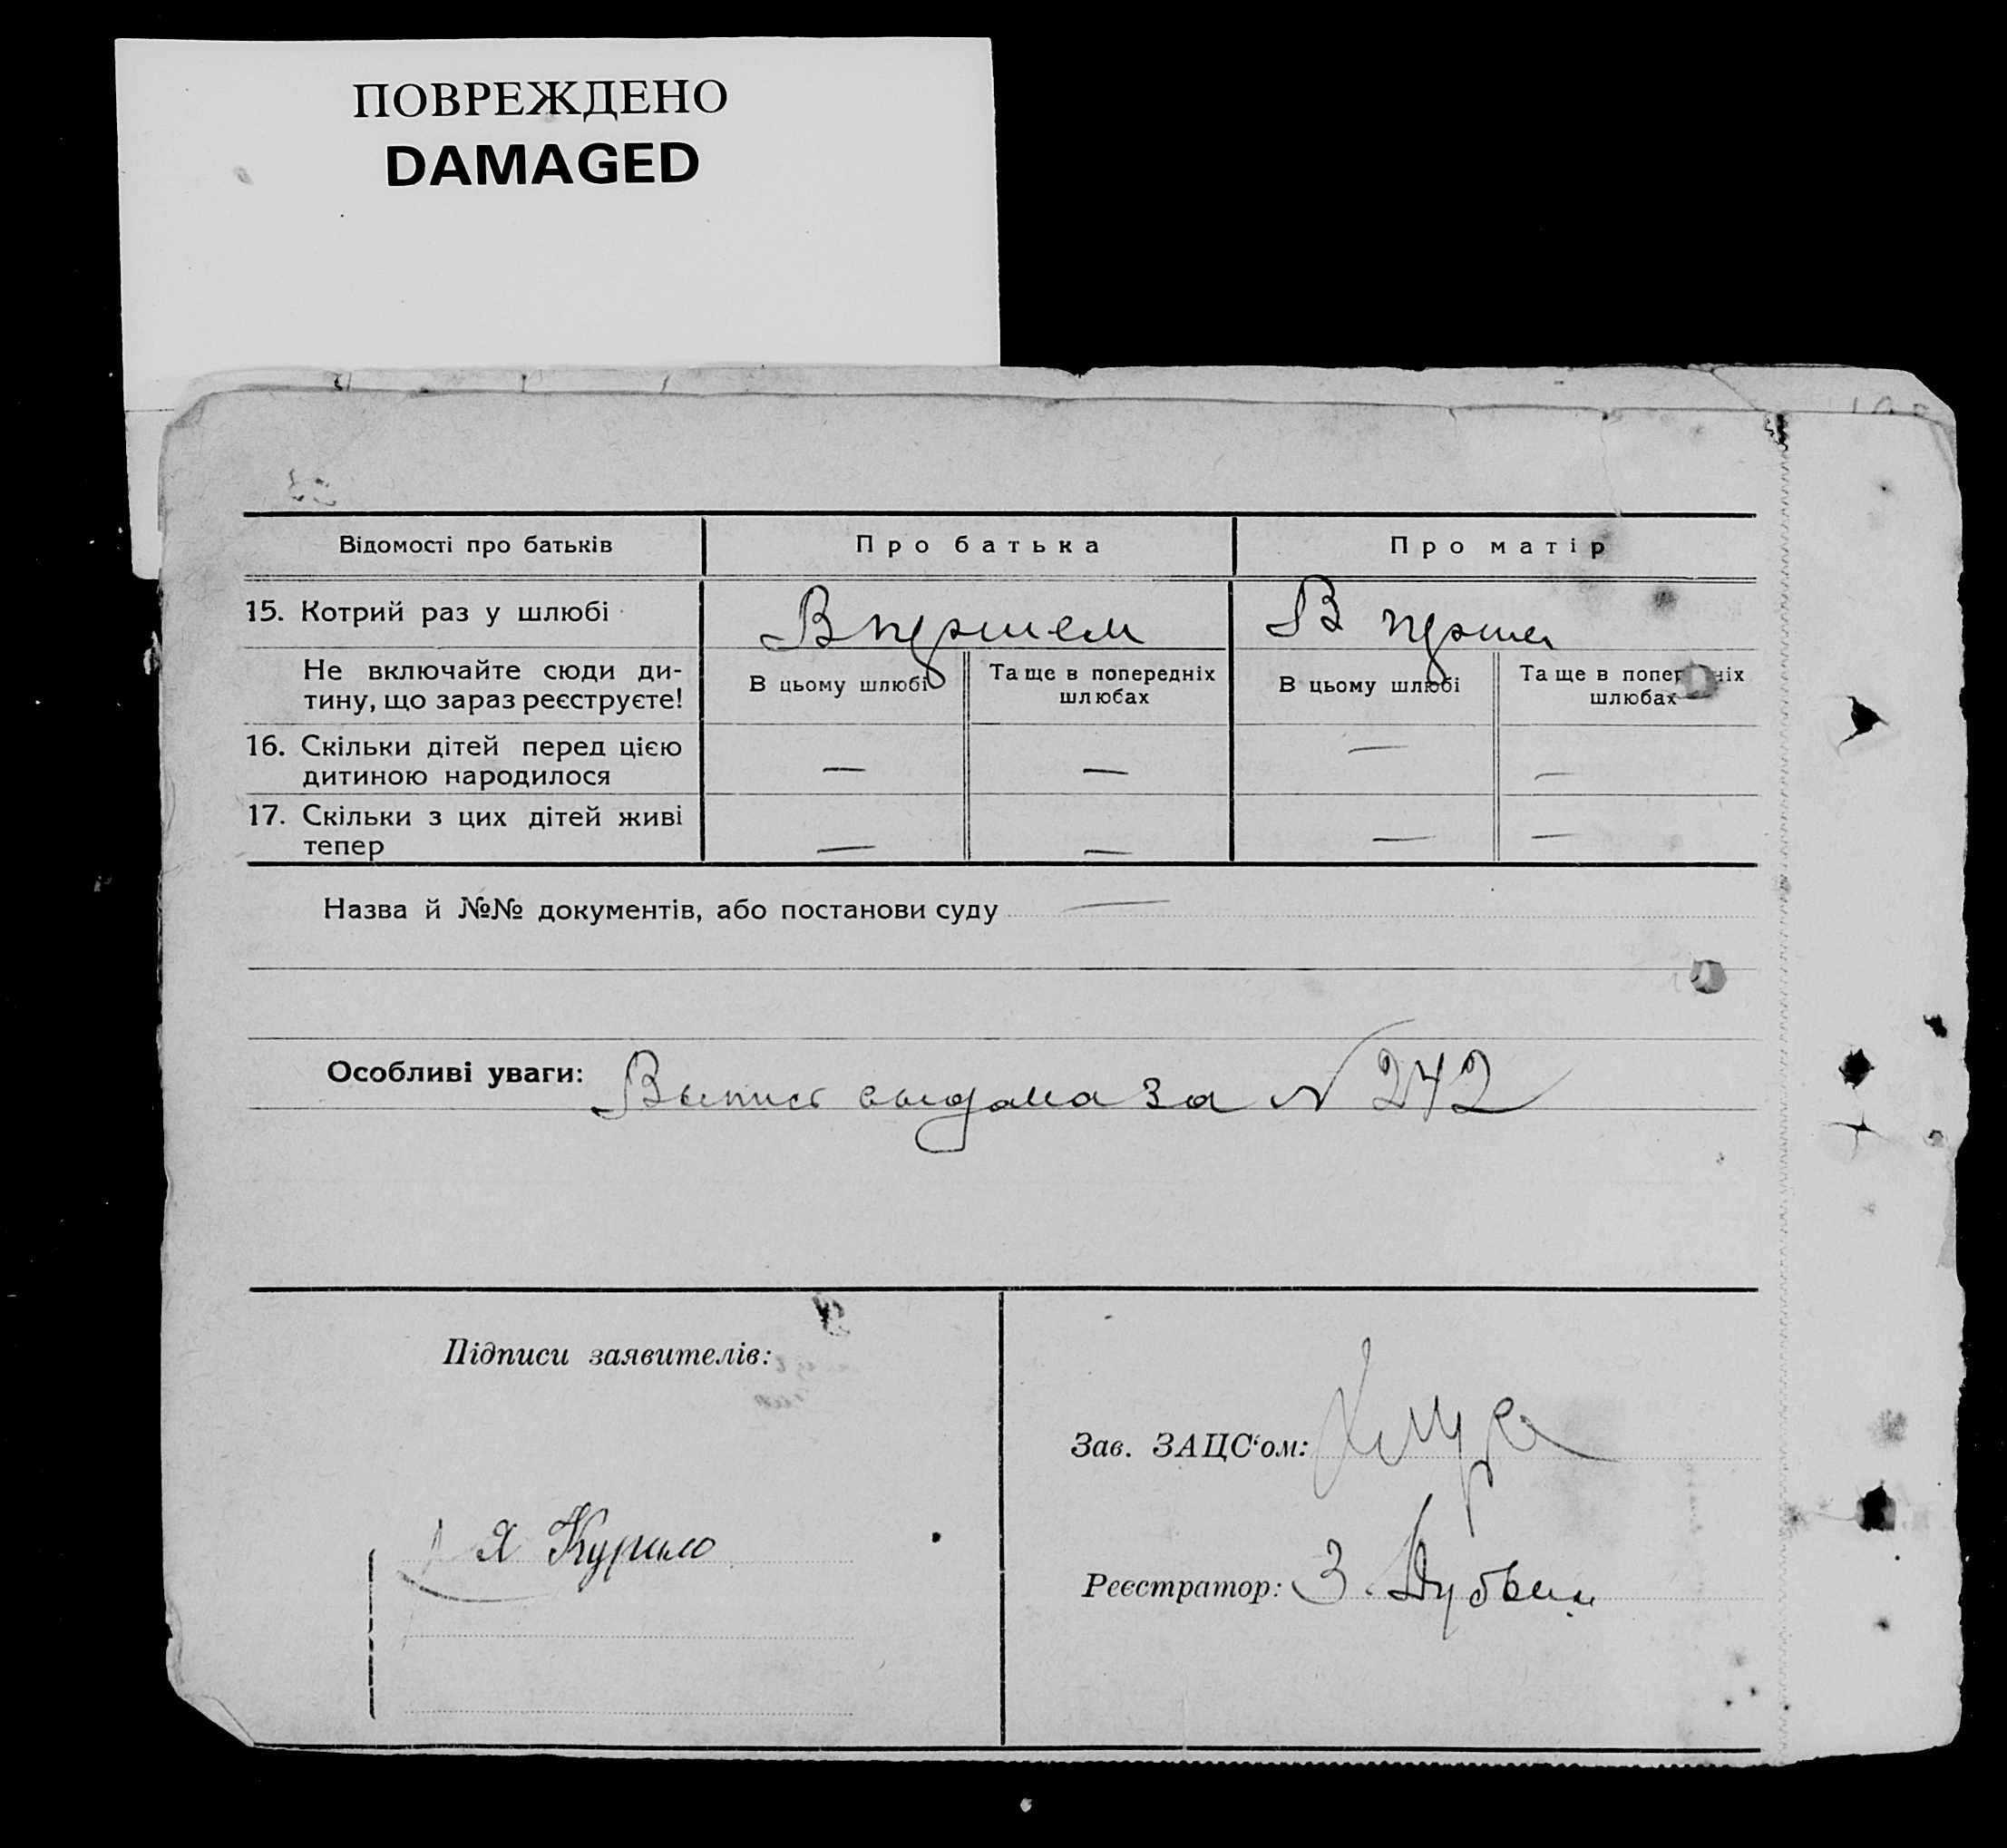 ПОВРЕЖДЕНО
DAMAGED
Відомості про батьків
Про батька
Про матір
15. Котрий раз у шлюбі
В першем
В перше
Не включайте сюди ди-
тину, що зараз реєструєте!
В цьому шлюбі
Та ще в попередніх
шлюбах
В цьому шлюбі
Та ще в попередніх
шлюбах
16. Скільки дітей перед цією
дитиною народилося
— — — —
17. Скільки з цих дітей живі
тепер
— — — —
Назва й №№ документів, або постанови суду —
Особливі уваги: Выпись выдана за N 242
Підписи заявителів:
Зав. ЗАЦС‘ом:
Я Курило
Реєстратор: З.